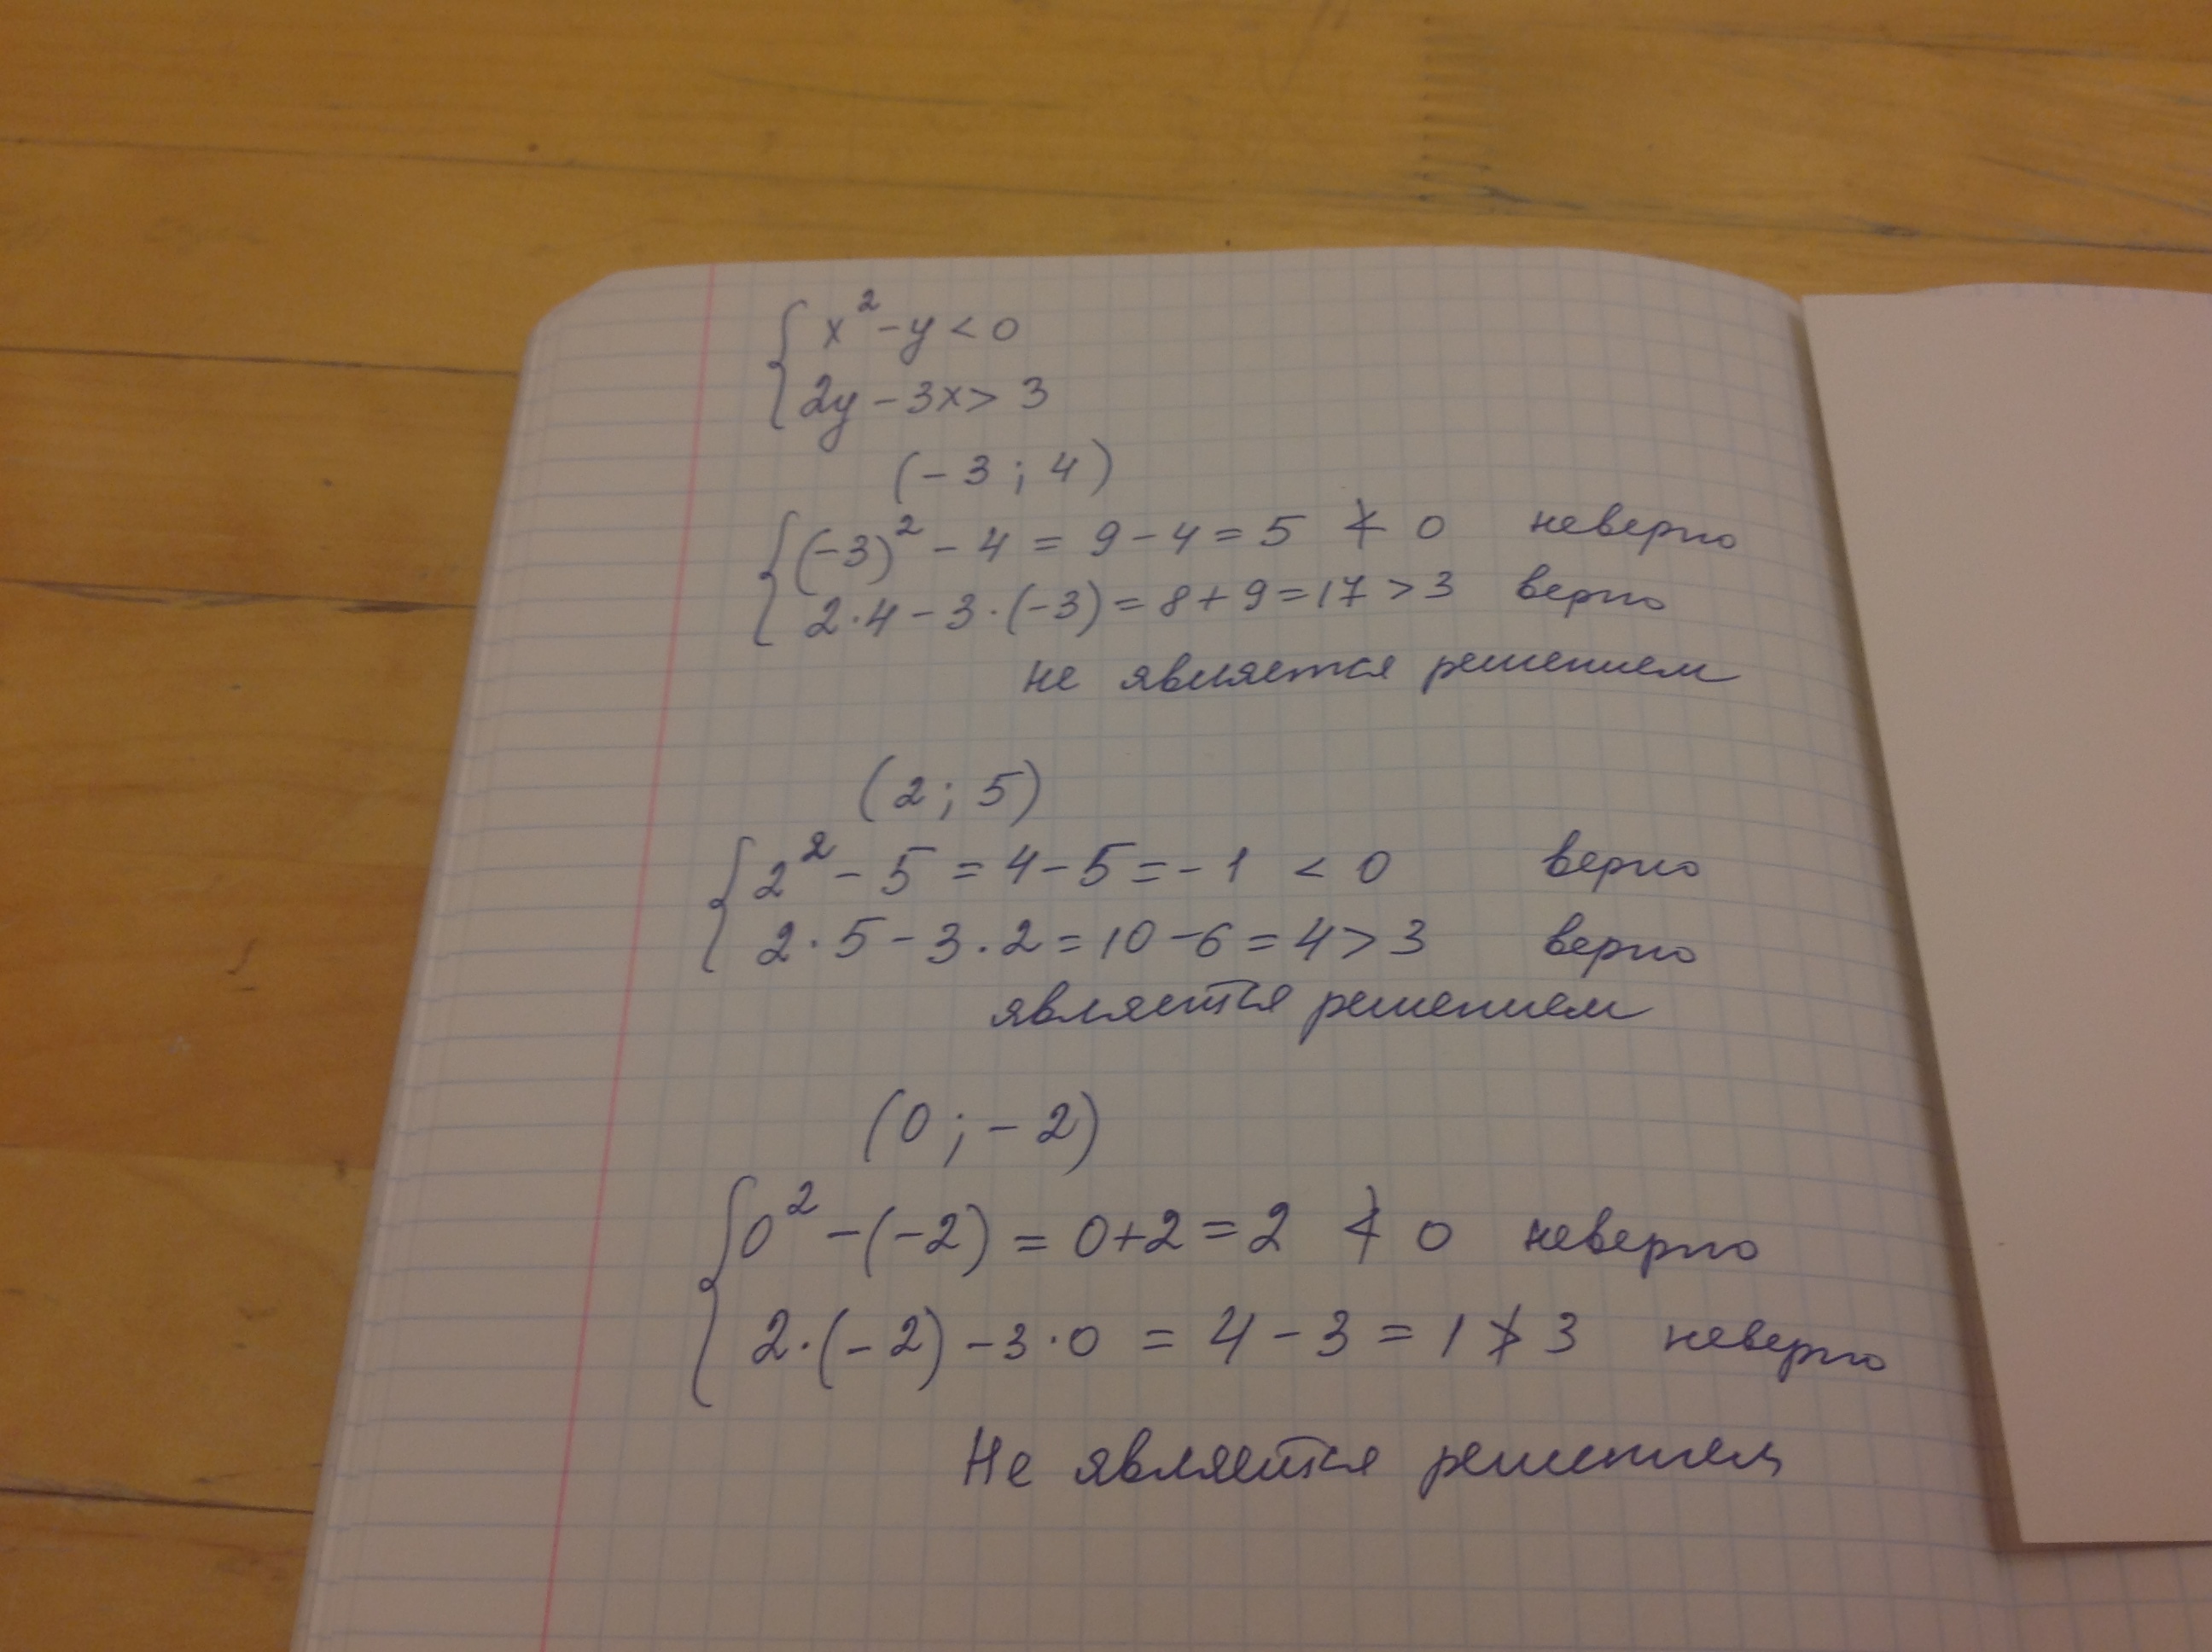 { x² - y < 0
{ 2y - 3x > 3
(-3; 4)
{ (-3)² - 4 = 9 - 4 = 5 ≮ 0 неверно
{ 2·4 - 3·(-3) = 8 + 9 = 17 > 3 верно
не является решением
(2; 5)
{ 2² - 5 = 4 - 5 = -1 < 0 верно
{ 2·5 - 3·2 = 10 - 6 = 4 > 3 верно
является решением
(0; -2)
{ 0² - (-2) = 0 + 2 = 2 ≮ 0 неверно
{ 2·(-2) - 3·0 = 4 - 3 = 1 ≯ 3 неверно
Не является решением